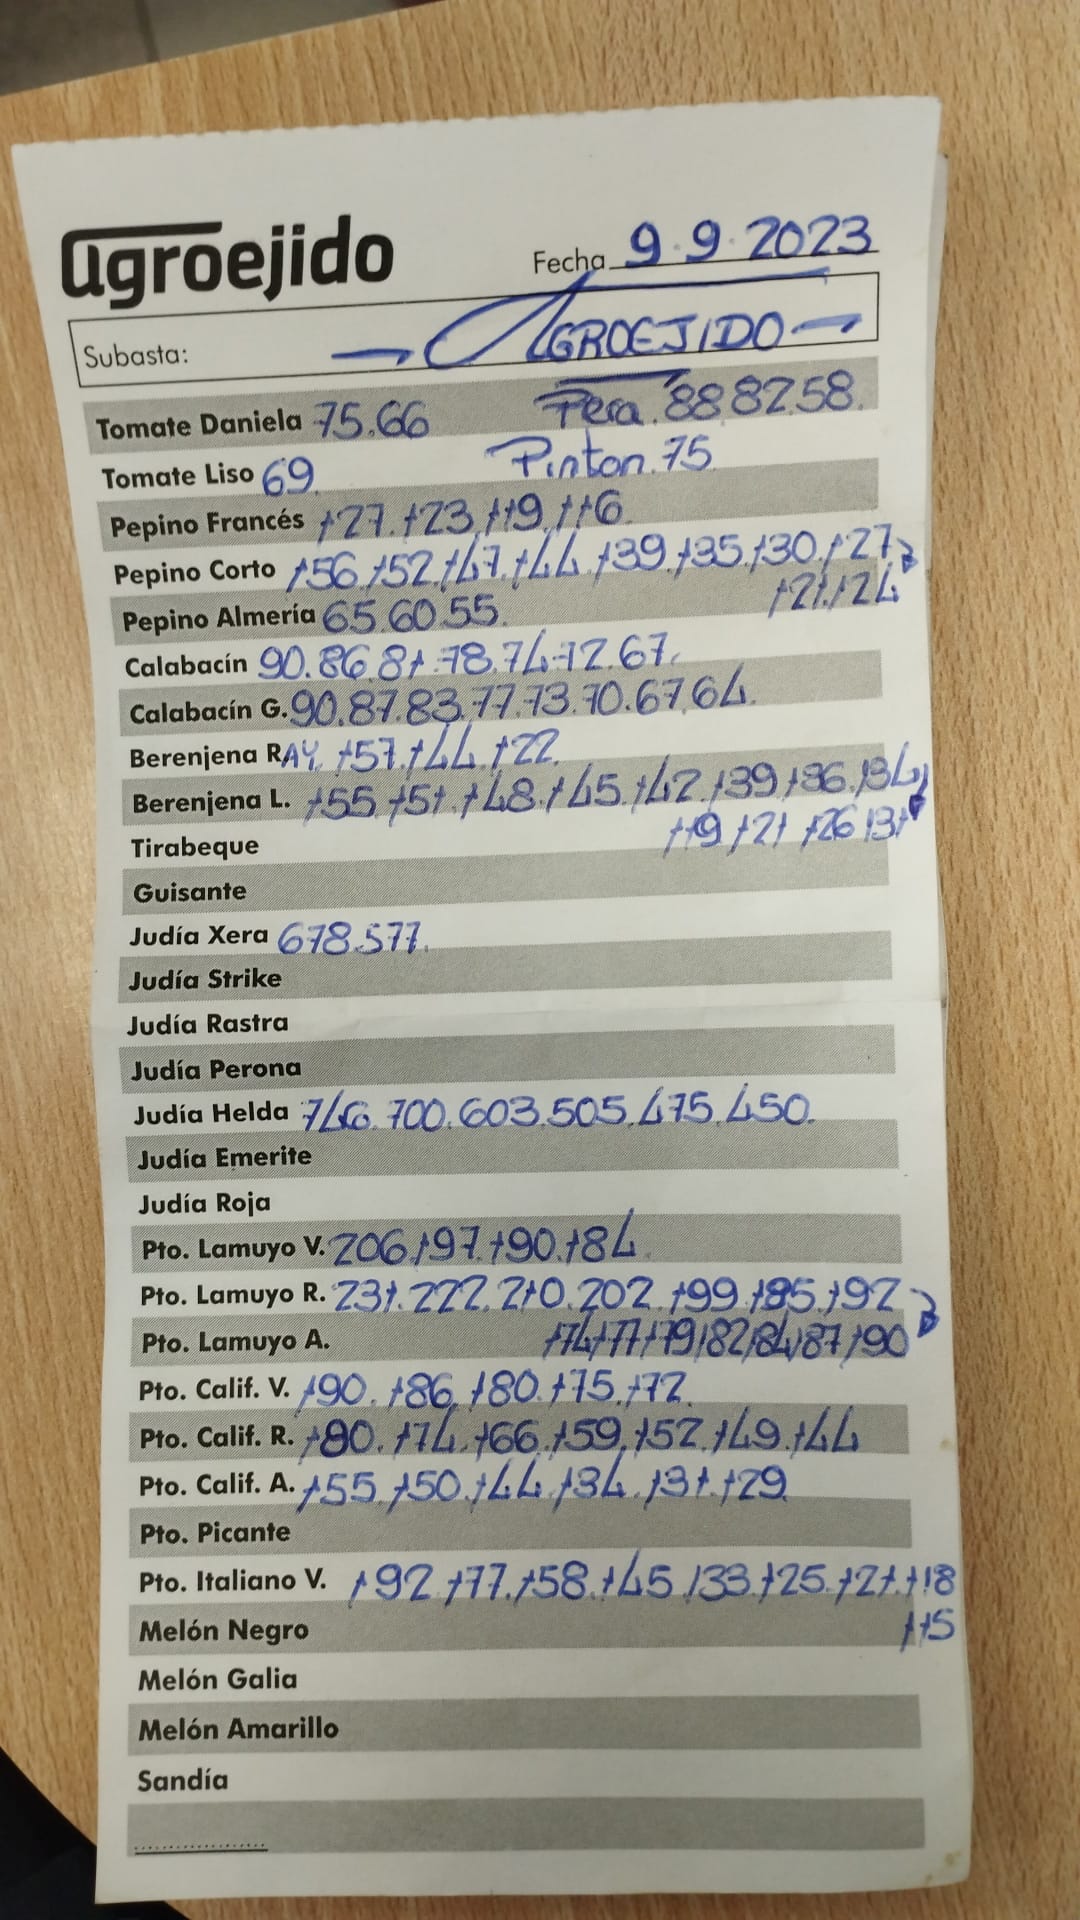 agroejido
Fecha 9.9.2023
Subasta: — AGROEJIDO —
Tomate Daniela 75.66 Pera. 88.82.58.
Tomate Liso 69. Pinton. 75
Pepino Francés 127.123.119.116.
Pepino Corto 156.152.147.144.139.135.130.127
121.124
Pepino Almería 65.60.55.
Calabacín 90.86.81.78.74.72.67.
Calabacín G. 90.87.83.77.73.70.67.64.
Berenjena RAY. 157.144.122.
Berenjena L. 155.151.148.145.142.139.136.134
119 121 126 131
Tirabeque
Guisante
Judía Xera 678.577.
Judía Strike
Judía Rastra
Judía Perona
Judía Helda 746.700.603.505.475.450.
Judía Emerite
Judía Roja
Pto. Lamuyo V. 206.197.190.184
Pto. Lamuyo R. 231.222.210.202.199.195.192
Pto. Lamuyo A. 174 177 179 182 184 187 190
Pto. Calif. V. 190.186.180.175.172.
Pto. Calif. R. 180.174.166.159.152.149.144
Pto. Calif. A. 155.150.144.134.131.129.
Pto. Picante
Pto. Italiano V. 192.177.158.145.133.125.121.118
115
Melón Negro
Melón Galia
Melón Amarillo
Sandía